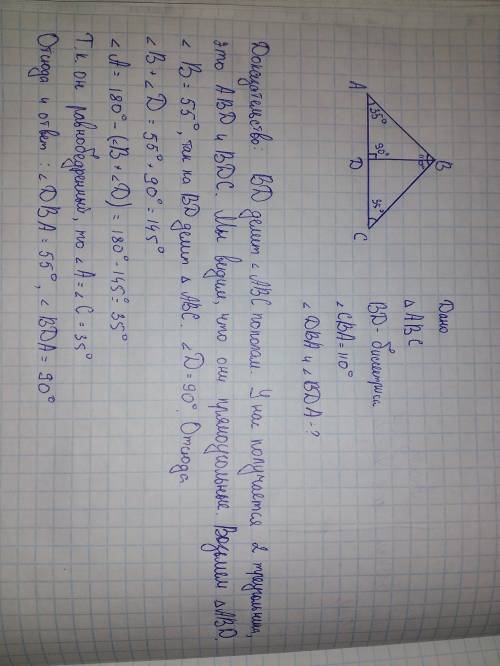 Дано
△ABC
BD - биссектриса
∠CBA = 110°
∠DBA и ∠BDA - ?
B
110°
35°
90°
35°
A
D
C
Доказательство: BD делит ∠ABC пополам. У нас получается 2 треугольника,
это ABD и BDC. Мы видим, что они прямоугольные. Возьмем △ABD.
∠B = 55°, так на BD делит △ABC ∠D = 90°. Отсюда
∠B + ∠D = 55° + 90° = 145°
∠A = 180° - (∠B + ∠D) = 180° - 145° = 35°
Т.к он равнобедренный, то ∠A = ∠C = 35°
Отсюда и ответ: ∠DBA = 55°, ∠BDA = 90°